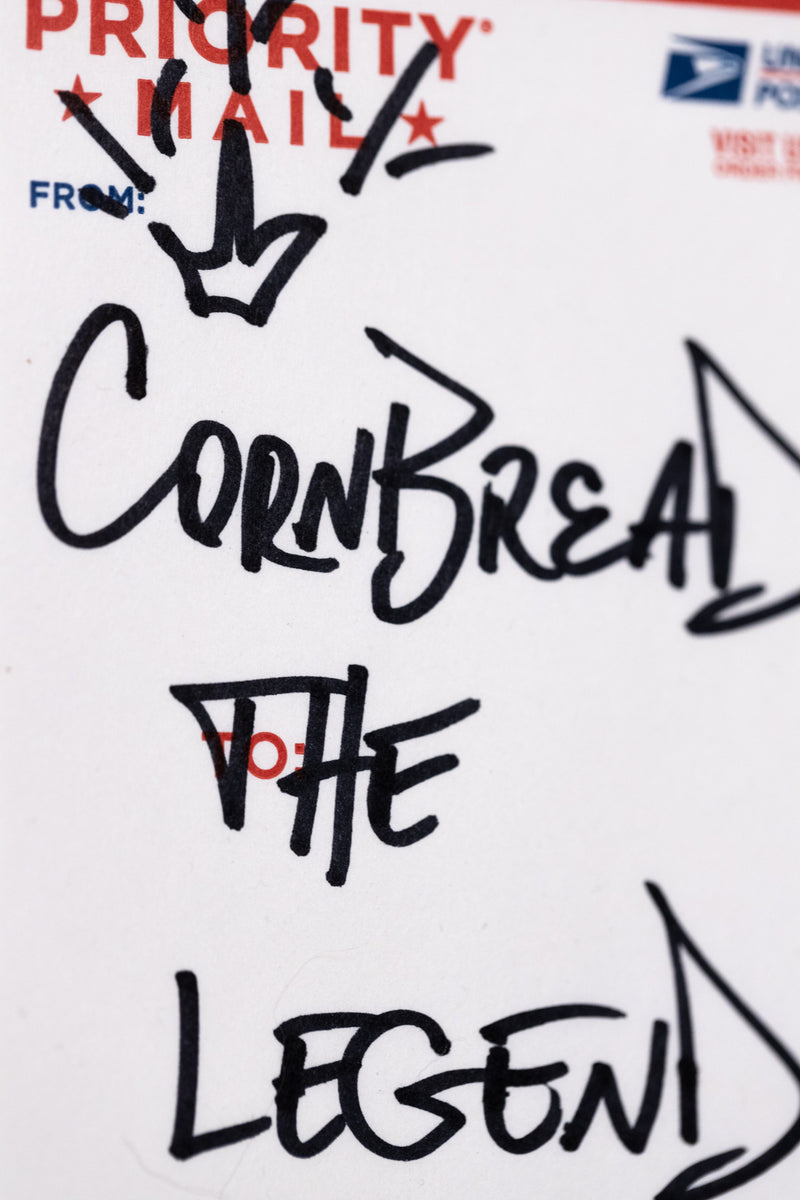 PRIORITY®
MAIL
FROM:
VISIT
CORNBREAD
TO:
THE
LEGEND